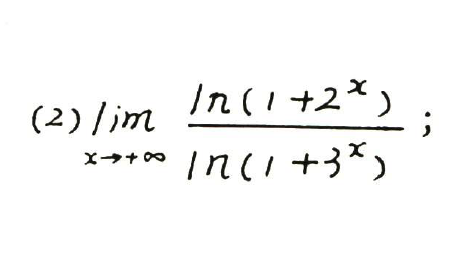 (2) lim x→+∞ ln(1+2^x) / ln(1+3^x) ;